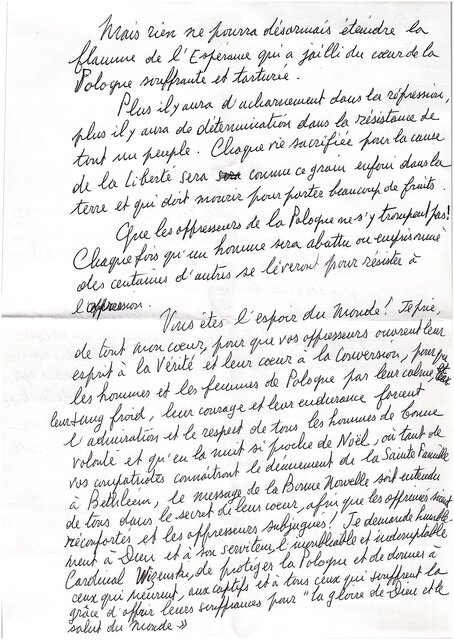 Mais rien ne pourra désormais éteindre la
flamme de l'Espérance qui a jailli du cœur de la
Pologne souffrante et torturée.
Plus il y aura d'acharnement dans la répression,
plus il y aura de détermination dans la résistance de
tout un peuple. Chaque vie sacrifiée pour la cause
de la Liberté sera comme ce grain enfoui dans la
terre et qui doit mourir pour porter beaucoup de fruits.
Que les oppresseurs de la Pologne ne s'y trompent pas!
Chaque fois qu'un homme sera abattu ou emprisonné
des centaines d'autres se lèveront pour résister à
l'oppression.
Vous êtes l'espoir du Monde! Je prie,
de tout mon cœur, pour que vos oppresseurs ouvrent leur
esprit à la Vérité et leur cœur à la Conversion, pour que
les hommes et les femmes de Pologne par leur calme, et
leur sang froid, leur courage et leur endurance forcent
l'admiration et le respect de tous les hommes de bonne
volonté et qu'en la nuit si proche de Noël, où tant de
vos compatriotes connaîtront le dénuement de la Sainte Famille
à Bethléem, le message de la Bonne Nouvelle soit entendu
de tous dans le secret de leur cœur, afin que les opprimés soient
réconfortés et les oppresseurs subjugués! Je demande humble-
ment à Dieu et à son serviteur, l'inoubliable et indomptable
Cardinal Wizenski, de protéger la Pologne et de donner à
ceux qui meurent, aux captifs et à tous ceux qui souffrent la
grâce d'offrir leurs souffrances pour "la gloire de Dieu et le
salut du monde »